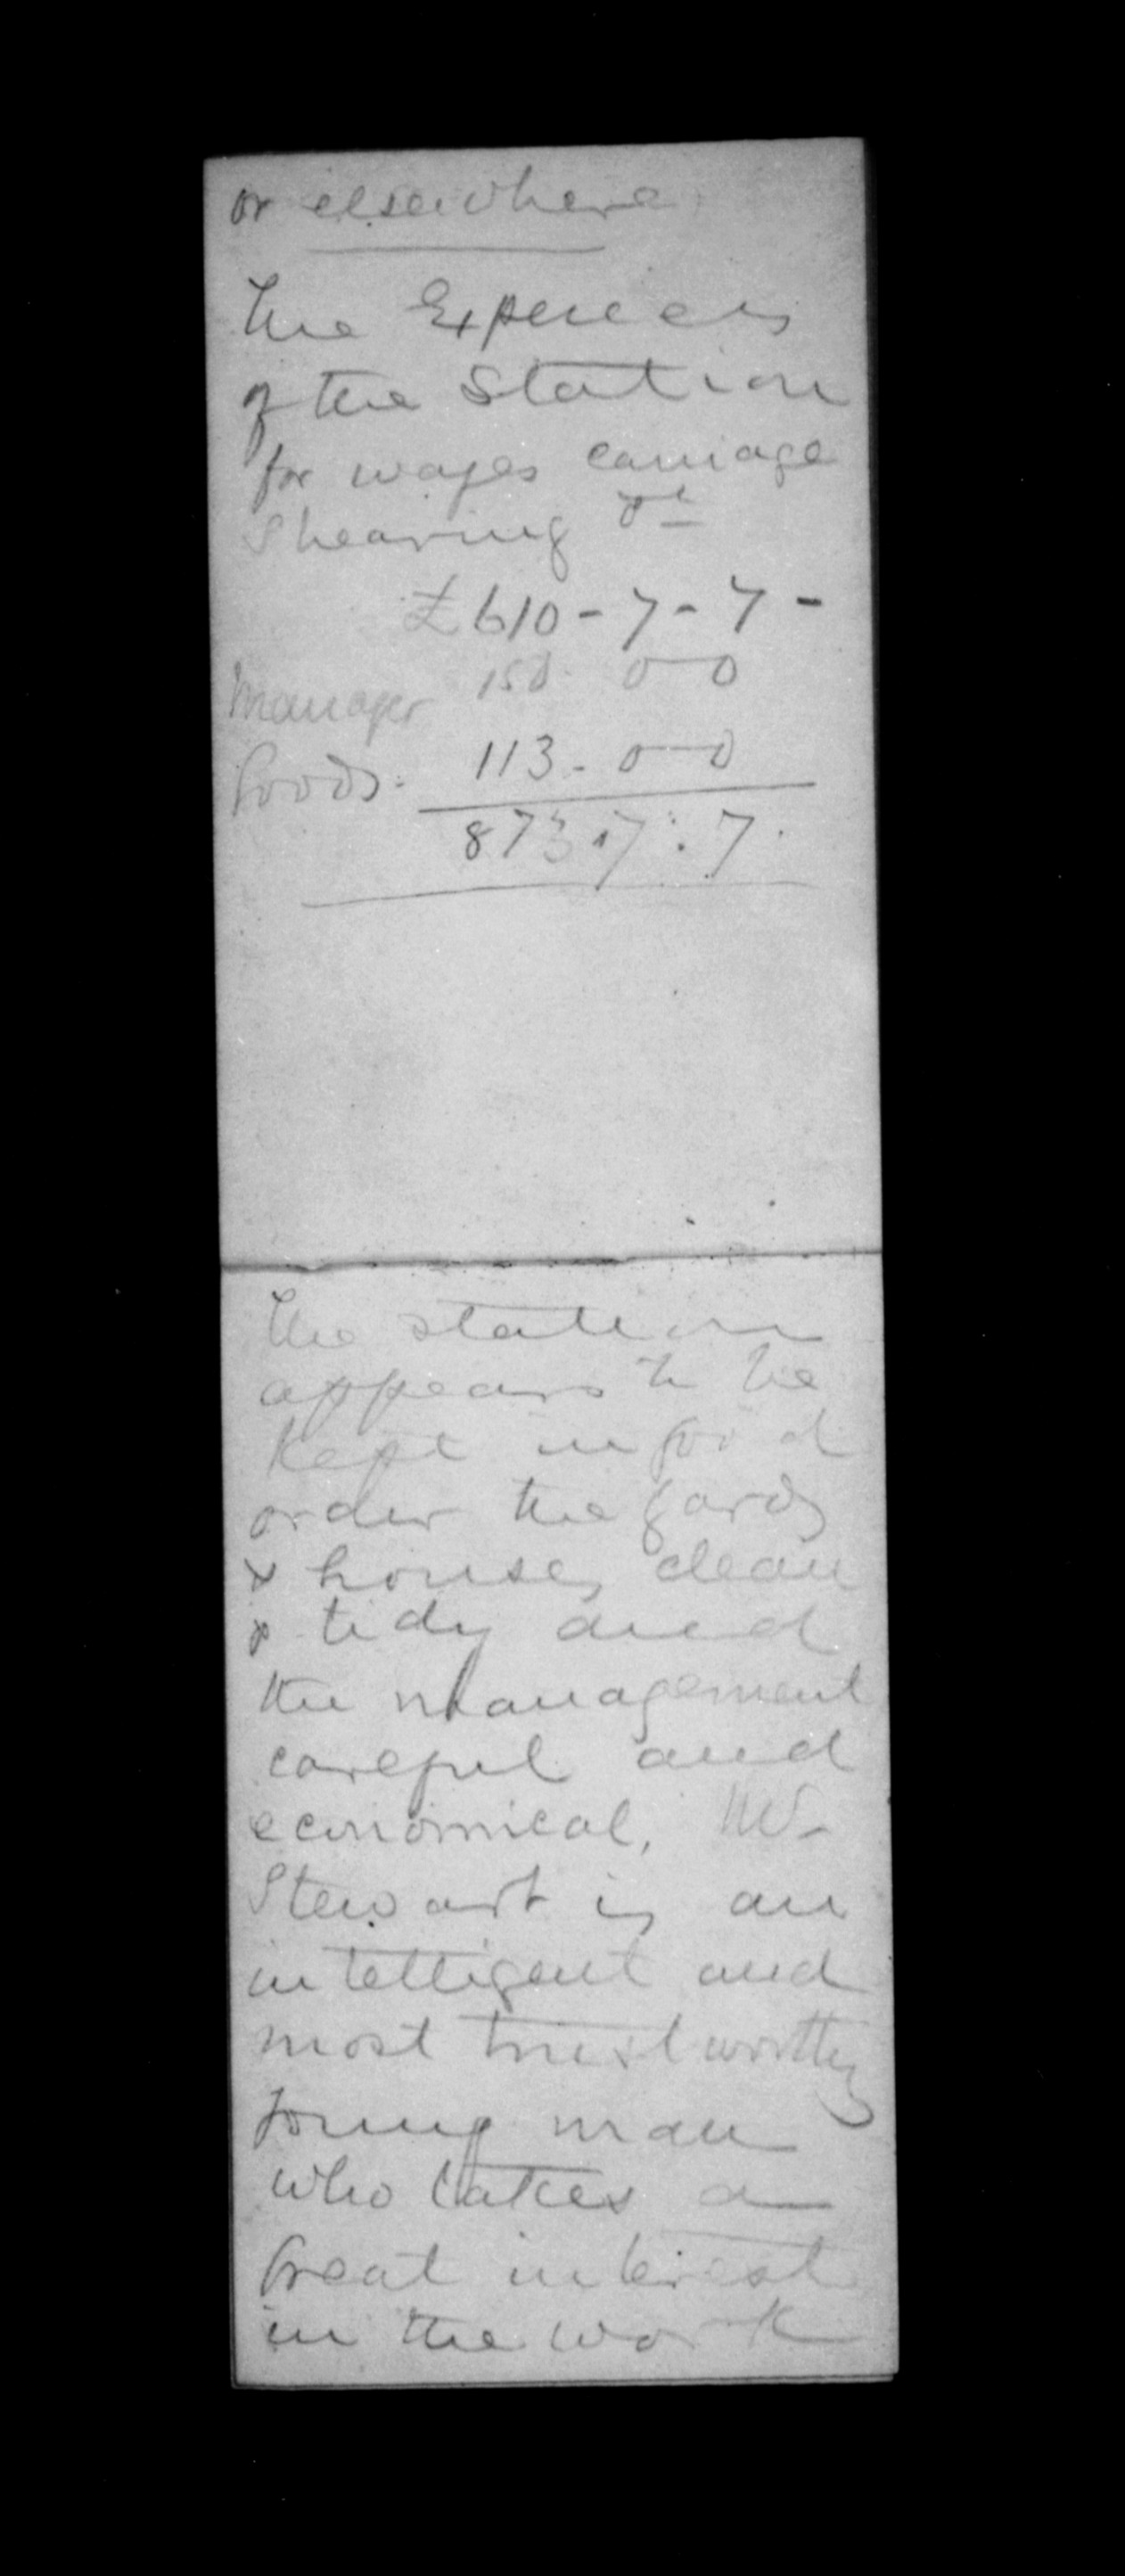 or elsewhere
The Expences
of the Station
for wages carriage
Shearing &c
£610-7-7-
Manager 150. 0-0
Goods. 113-0-0
873.7.7.
The station
appears to be
kept in good
order the yards
& houses clean
& tidy and
the management
careful and
economical, Mr
Stewart is an
intelligent and
most trustworthy
young man
who takes a
great interest
in the work